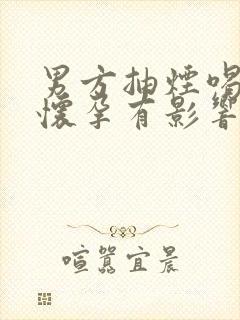 男方抽煙喝
懷孕有影響
喧囂宜晨